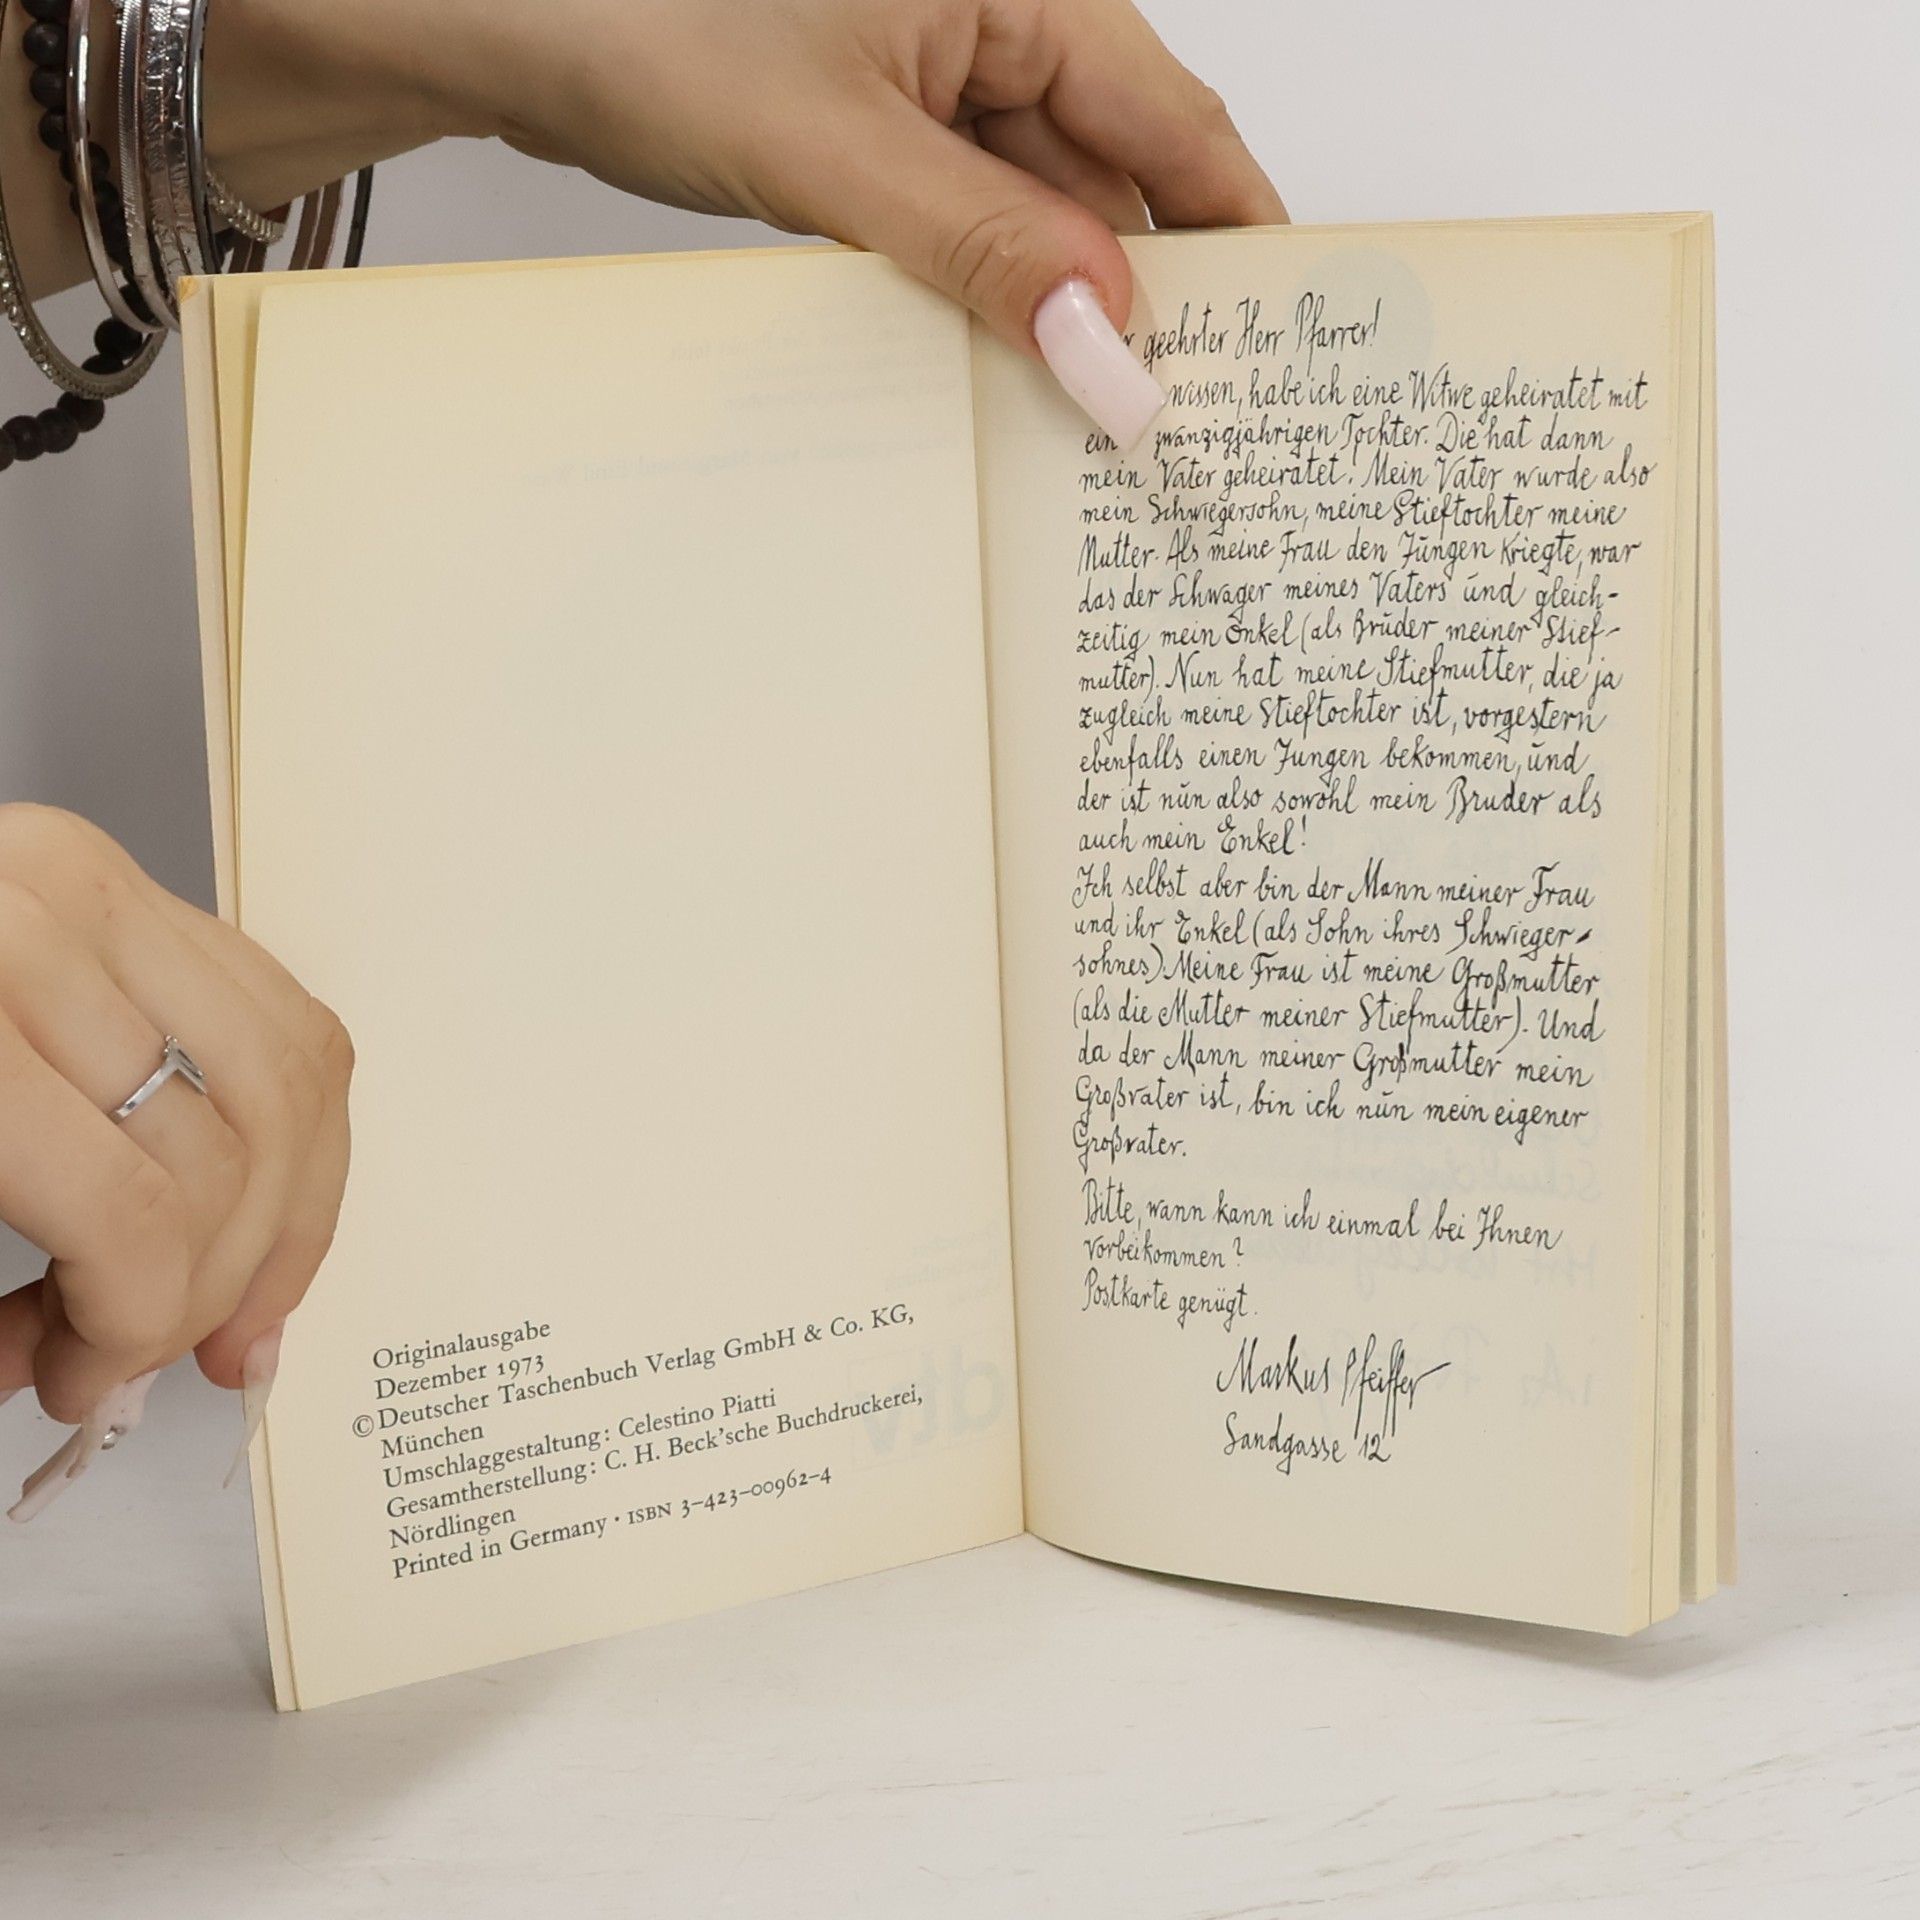 Originalausgabe
Dezember 1973
© Deutscher Taschenbuch Verlag GmbH & Co. KG,
München
Umschlaggestaltung: Celestino Piatti
Gesamtherstellung: C. H. Beck'sche Buchdruckerei,
Nördlingen
Printed in Germany · ISBN 3-423-00962-4
geehrter Herr Pfarrer!
wissen, habe ich eine Witwe geheiratet mit
zwanzigjährigen Tochter. Die hat dann
mein Vater geheiratet. Mein Vater wurde also
mein Schwiegersohn, meine Stieftochter meine
Mutter. Als meine Frau den Jungen kriegte, war
das der Schwager meines Vaters und gleich-
zeitig mein Enkel (als Bruder meiner Stief-
mutter). Nun hat meine Stiefmutter, die ja
zugleich meine Stieftochter ist, vorgestern
ebenfalls einen Jungen bekommen, und
der ist nun also sowohl mein Bruder als
auch mein Enkel!
Ich selbst aber bin der Mann meiner Frau
und ihr Enkel (als Sohn ihres Schwieger-
sohnes). Meine Frau ist meine Großmutter
(als die Mutter meiner Stiefmutter). Und
da der Mann meiner Großmutter mein
Großvater ist, bin ich nun mein eigener
Großvater.
Bitte, wann kann ich einmal bei Ihnen
vorbeikommen?
Postkarte genügt.
Markus Pfeiffer
Sandgasse 12